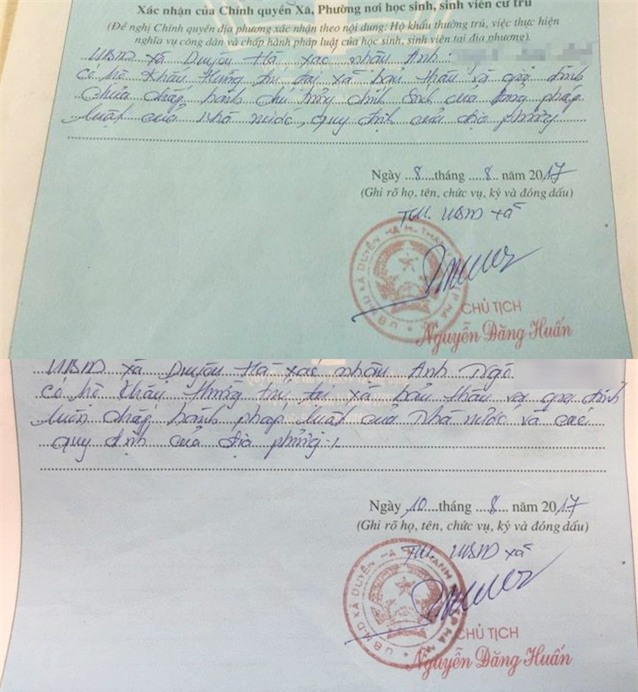 Xác nhận của Chính quyền Xã, Phường nơi học sinh, sinh viên cư trú
(Đề nghị Chính quyền địa phương xác nhận theo nội dung: Hộ khẩu thường trú, việc thực hiện
nghĩa vụ công dân và chấp hành pháp luật của học sinh, sinh viên tại địa phương).
UBND xã Duyên Hà xác nhận Anh:
Có hộ khẩu thường trú tại xã bản thân và gia đình
chưa chấp hành chủ trương chính sách của Đảng pháp
luật của nhà nước, quy định của địa phương
Ngày 8 tháng 8 năm 2017
(Ghi rõ họ, tên, chức vụ, ký và đóng dấu)
TM. UBND xã
U.B.N.D XÃ DUYÊN HÀ
CHỦ TỊCH
Nguyễn Đăng Huấn
UBND xã Duyên Hà xác nhận Anh Ngô
Có hộ khẩu thường trú tại xã bản thân và gia đình
luôn chấp hành pháp luật của Nhà nước và các
quy định của địa phương./.
Ngày 10 tháng 8 năm 2017
(Ghi rõ họ, tên, chức vụ, ký và đóng dấu)
TM. UBND xã
U.B.N.D XÃ DUYÊN HÀ
CHỦ TỊCH
Nguyễn Đăng Huấn